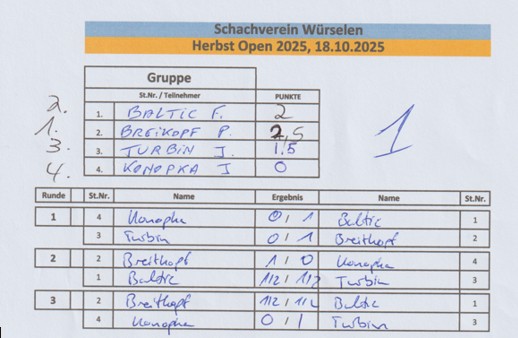 Schachverein Würselen
Herbst Open 2025, 18.10.2025
Gruppe
St.Nr. / Teilnehmer PUNKTE
2. 1. BALTIC F. 2
1. 2. BREIKOPF P. 2,5
3. 3. TURBIN I. 1,5
4. 4. KONOPKA J 0
1
Runde St.Nr. Name Ergebnis Name St.Nr.
1 4 Konopka 0 / 1 Baltic 1
3 Turbin 0 / 1 Breitkopf 2
2 2 Breitkopf 1 / 0 Konopka 4
1 Baltic 1/2 / 1/2 Turbin 3
3 2 Breitkopf 1/2 / 1/2 Baltic 1
4 Konopka 0 / 1 Turbin 3